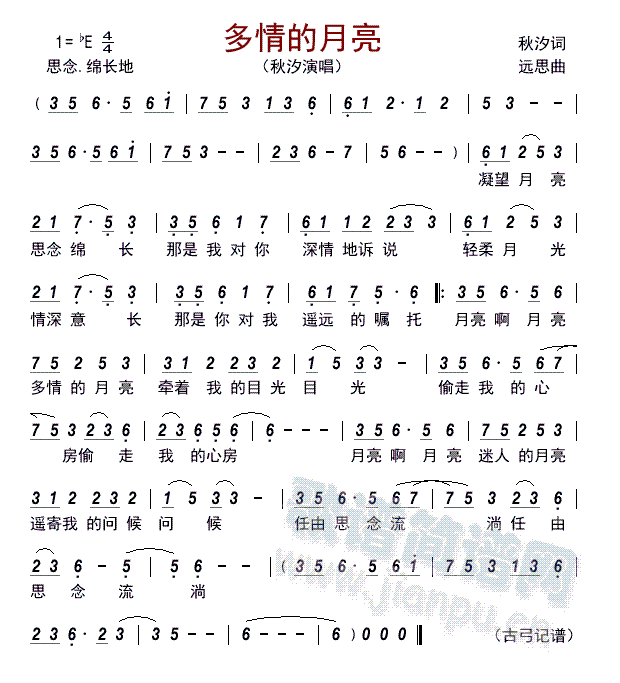 多情的月亮
1=ᵇE 4/4
秋汐词
思念.绵长地
(秋汐演唱)
远思曲
( 3 5 6 · 5 6 1 | 7 5 3 1 3 6 | 6 1 2 · 1 2 | 5 3 - - |
3 5 6 · 5 6 1 | 7 5 3 - - | 2 3 6 - 7 | 5 6 - - ) | 6 1 2 5 3
凝望 月 亮
2 1 7 · 5 3 | 3 5 6 1 7 | 6 1 1 2 2 3 3 | 6 1 2 5 3 |
思念 绵 长 那是 我 对 你 深情 地诉 说 轻柔 月 光
2 1 7 · 5 3 | 3 5 6 1 7 | 6 1 7 5 · 6 ‖: 3 5 6 · 5 6 |
情深 意 长 那是 你 对 我 遥远 的 嘱 托 月亮 啊 月 亮
7 5 2 5 3 | 3 1 2 2 3 2 | 1 5 3 3 - | 3 5 6 · 5 6 7 |
多情 的 月 亮 牵着 我 的目 光 目 光 偷走 我 的 心
7 5 3 2 3 6 | 2 3 6 5 6 | 6 - - - | 3 5 6 · 5 6 | 7 5 2 5 3 |
房偷 走 我 的心房 月亮 啊 月 亮 迷人 的月亮
3 1 2 2 3 2 | 1 5 3 3 - | 3 5 6 · 5 6 7 | 7 5 3 2 3 6 |
遥寄我 的问 候 问 候 任由 思 念 流 淌任 由
2 3 6 - 5 | 6 - - - | ( 3 5 6 · 5 6 1 | 7 5 3 1 3 6 |
思 念 流 淌
2 3 6 · 2 3 | 3 5 - - | 6 - - - | 6 ) 0 0 0 ‖
(古弓记谱)
歌谱简谱网
www.jianpu.cn